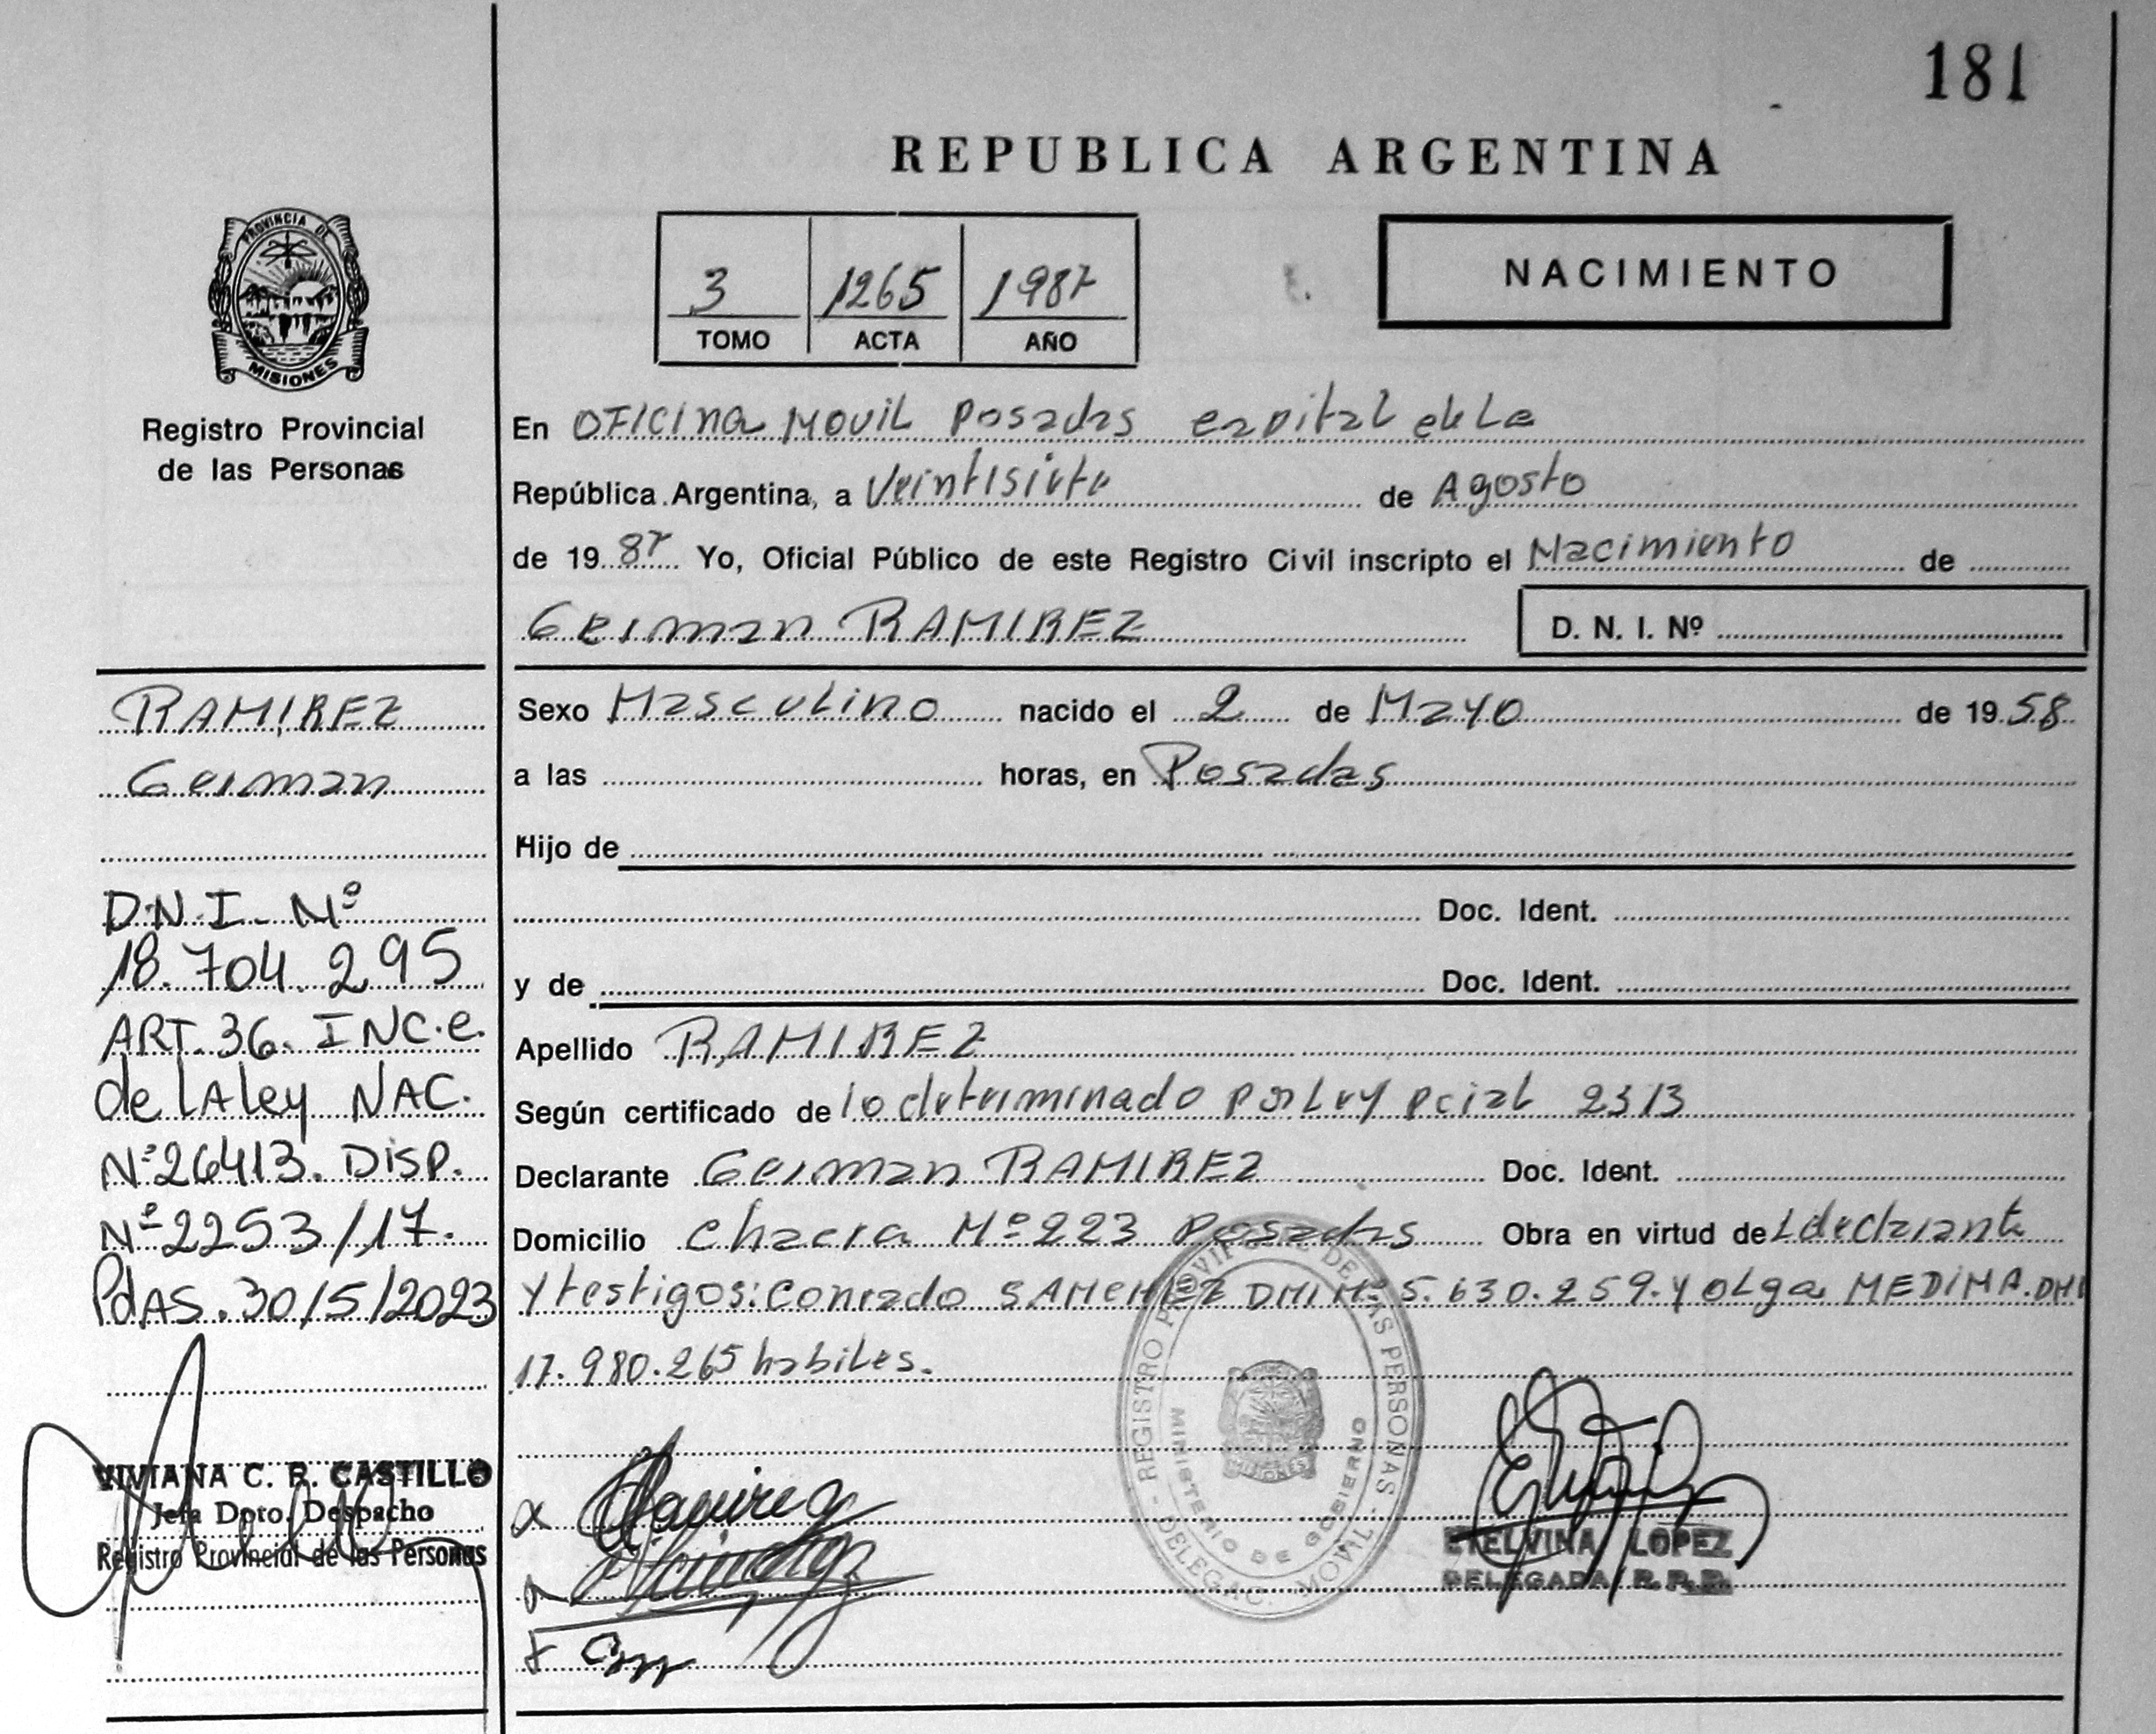 181
REPUBLICA ARGENTINA
PROVINCIA DE
MISIONES
Registro Provincial
de las Personas
3 1265 1987
TOMO ACTA AÑO
NACIMIENTO
En OFICINA MOVIL Posadas capital de La
República Argentina, a Veintisiete de Agosto
de 19 87 Yo, Oficial Público de este Registro Civil inscripto el Nacimiento de
German RAMIREZ D. N. I. Nº
RAMIREZ
German
D.N.I. Nº
18.704.295
ART. 36. INC. e.
de LA ley NAC.
Nº 26413. DISP.
Nº 2253/17.
PdAS. 30/5/2023
VIVIANA C. R. CASTILLO
Jefa Dpto. Despacho
Registro Provincial de las Personas
Sexo Masculino nacido el 2 de Mayo de 19 58
a las horas, en Posadas
Hijo de
Doc. Ident.
y de Doc. Ident.
Apellido RAMIREZ
Según certificado de lo determinado por Ley pcial 2313
Declarante German RAMIREZ Doc. Ident.
Domicilio chacra Nº 223 Posadas Obra en virtud de L declarante
Y testigos: Conrado DNI Nº 5.630.259. Y OLga MEDINA. DNI
17.980.265 habiles.
REGISTRO PROVINCIAL DE LAS PERSONAS - DELEGAC. MOVIL -
MINISTERIO DE GOBIERNO
MISIONES
Ramirez
ETELVINA LOPEZ
DELEGADA R.P.P.